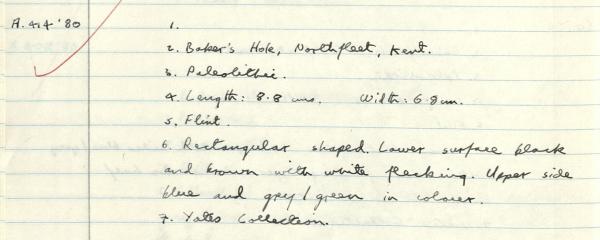 A.414 '80
1.
2. Baker's Hole, Northfleet, Kent.
3. Paleolithic.
4. Length: 8.8 cms. Width: 6.8cm.
5. Flint.
6. Rectangular shaped. Lower surface black
and brown with white flecking. Upper side
blue and grey/green in colour.
7. Yates Collection.